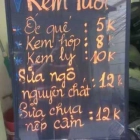 Kem Tươi
Ốc quế : 5k
Kem hộp : 8k
Kem ly : 10k
Sữa ngô
nguyên chất : 12k
Sữa chua
nếp cẩm : 12k